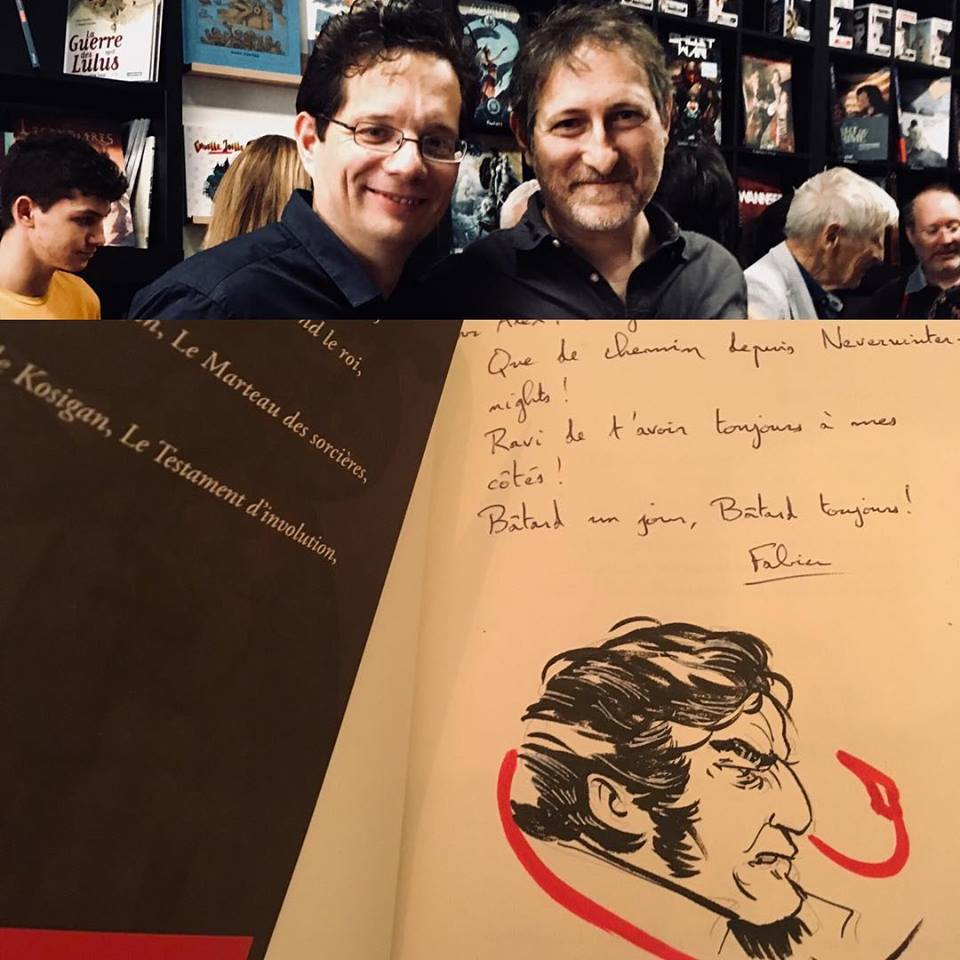 La
Guerre
des
Lulus
GHOST
WAR
nd le roi,
n, Le Marteau des sorcières,
le Kosigan, Le Testament d'involution,
Que de chemin depuis Neverwinter-
nights !
Ravi de t'avoir toujours à mes
côtés !
Bâtard un jour, Bâtard toujours !
Fabien